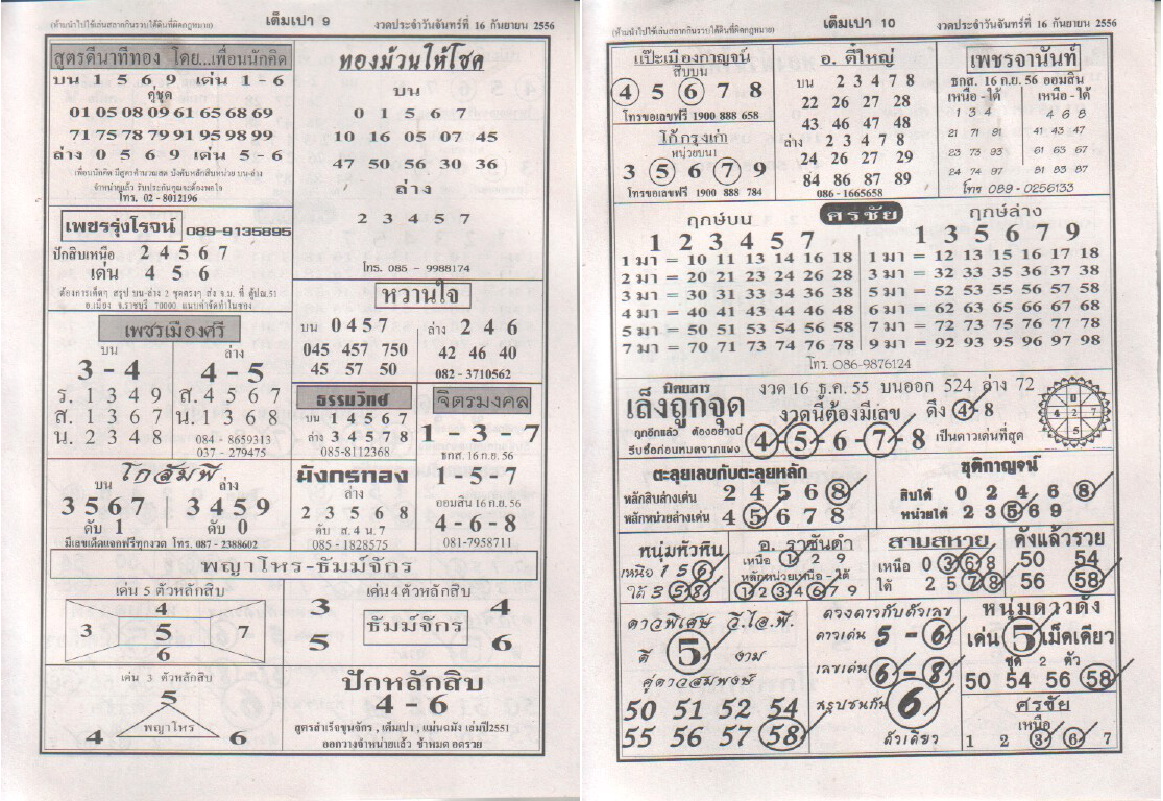 (ห้ามนำไปใช้เล่นสลากกินรวบใต้ดินที่ผิดกฎหมาย)
เต็มเปา 9
งวดประจำวันจันทร์ที่ 16 กันยายน 2556
สูตรดีนาทีทอง โดย...เพื่อนนักคิด
บน 1 5 6 9 เด่น 1 - 6
คู่ชุด
01 05 08 09 61 65 68 69
71 75 78 79 91 95 98 99
ล่าง 0 5 6 9 เด่น 5 - 6
จำหน่ายแล้ว รับประกันคุณจะต้องพอใจ
โทร. 02 - 8012196
ทองม้วนให้โชค
บน
0 1 5 6 7
10 16 05 07 45
47 50 56 30 36
ล่าง
2 3 4 5 7
โทร. 085 - 9988174
เพชรรุ่งโรจน์ 089-9135895
ปักสิบเหนือ 2 4 5 6 7
เด่น 4 5 6
ต้องการเด็ดๆ สรุป บน-ล่าง 2 ชุดตรงๆ ส่ง จ.ม. ที่ ตู้ปณ.51
อ.เมือง จ.ราชบุรี 70000 แนบค่าจัดทำในซอง
หวานใจ
บน 0 4 5 7
045 457 750
45 57 50
ล่าง 2 4 6
42 46 40
082 - 3710562
เพชรเมืองศรี
บน
3 - 4
ร. 1 3 4 9
ส. 1 3 6 7
น. 2 3 4 8
ล่าง
4 - 5
ส. 4 5 6 7
น. 1 3 6 8
084 - 8659313
037 - 279475
ธรรมวิทช์
บน 1 4 5 6 7
ล่าง 3 4 5 7 8
085-8112368
จิตรมงคล
1 - 3 - 7
ธกส. 16 ก.ย. 56
1 - 5 - 7
ออมสิน 16 ก.ย. 56
4 - 6 - 8
081-7958711
โกสัมพี
บน
3 5 6 7
ดับ 1
ล่าง
3 4 5 9
ดับ 0
มีเลขเด็ดแจกฟรีทุกงวด โทร. 087 - 2388602
มังกรทอง
ล่าง
2 3 5 6 8
ดับ ส. 4 น. 7
085 - 1828575
พญาโหร-ธัมม์จักร
เด่น 5 ตัวหลักสิบ
4
3 5 7
6
เด่น 4 ตัวหลักสิบ
3 4
ธัมม์จักร
5 6
เด่น 3 ตัวหลักสิบ
5
พญาโหร
4 6
ปักหลักสิบ
4 - 6
สูตรสำเร็จขุนจักร , เต็มเปา , แม่นฉมัง เล่มปี2551
ออกวางจำหน่ายแล้ว ช้าหมด อดรวย
(ห้ามนำไปใช้เล่นสลากกินรวบใต้ดินที่ผิดกฎหมาย)
เต็มเปา 10
งวดประจำวันจันทร์ที่ 16 กันยายน 2556
แป๊ะเมืองกาญจน์
สิบบน
4 5 6 7 8
โทรขอเลขฟรี 1900 888 658
โก้กรุงเก่า
หน่วยบน
3 5 6 7 9
โทรขอเลขฟรี 1900 888 784
อ. ตี๋ใหญ่
บน 2 3 4 7 8
22 26 27 28
43 46 47 48
ล่าง 2 3 4 7 8
24 26 27 29
84 86 87 89
086 - 1665658
เพชรจานันท์
ธกส. 16 ก.ย. 56 ออมสิน
เหนือ - ใต้ เหนือ - ใต้
1 3 4 4 6 8
21 71 81 41 43 47
23 73 93 61 63 67
24 74 97 81 83 87
โทร 089 - 0256133
ศรชัย
ฤกษ์บน
1 2 3 4 5 7
1 มา = 10 11 13 14 16 18
2 มา = 20 21 23 24 26 28
3 มา = 30 31 33 34 36 38
4 มา = 40 41 43 44 46 48
5 มา = 50 51 53 54 56 58
7 มา = 70 71 73 74 76 78
ฤกษ์ล่าง
1 3 5 6 7 9
1 มา = 12 13 15 16 17 18
3 มา = 32 33 35 36 37 38
5 มา = 52 53 55 56 57 58
6 มา = 62 63 65 66 67 68
7 มา = 72 73 75 76 77 78
9 มา = 92 93 95 96 97 98
โทร. 086-9876124
เล็งถูกจุด
นิตยสาร
ถูกอีกแล้ว ต้องอย่างนี้
รีบซื้อก่อนหมดจากแผง
งวด 16 ธ.ค. 55 บนออก 524 ล่าง 72
งวดนี้ต้องมีเลข ดึง 4 - 8
4 - 5 - 6 - 7 - 8 เป็นดาวเด่นที่สุด
ตะลุยเลขกับตะลุยหลัก
หลักสิบล่างเด่น 2 4 5 6 8
หลักหน่วยล่างเด่น 4 5 6 7 8
ชุติกาญจน์
สิบใต้ 0 2 4 6 8
หน่วยใต้ 2 3 5 6 9
หนุ่มหัวหิน
เหนือ 1 5 6
ใต้ 3 5 8
อ. ราชันดำ
เหนือ 1 2 9
หลักหน่วยเหนือ - ใต้
1 2 3 4 6 7 9
สามสหาย
เหนือ 0 3 6 8
ใต้ 2 5 7 8
ดังแล้วรวย
50 54
56 58
ดาวพิเศษ วี.ไอ.พี.
ดี 5 งาม
คู่ดาวสมพงษ์
50 51 52 54
55 56 57 58
ดวงดาวกับตัวเลข
ดาวเด่น 5 - 6
เลขเด่น 6 - 8
สรุปชนกัน 6
ตัวเดียว
หนุ่มดาวดัง
เด่น 5 เม็ดเดียว
ชุด 2 ตัว
50 54 56 58
ศรชัย
เหนือ
1 2 3 6 7